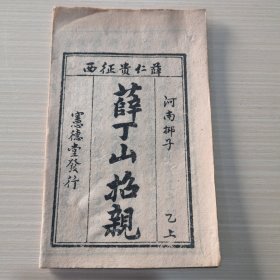 薛仁贵征西
河南梆子
乙上
薛丁山招親
憲德堂發行